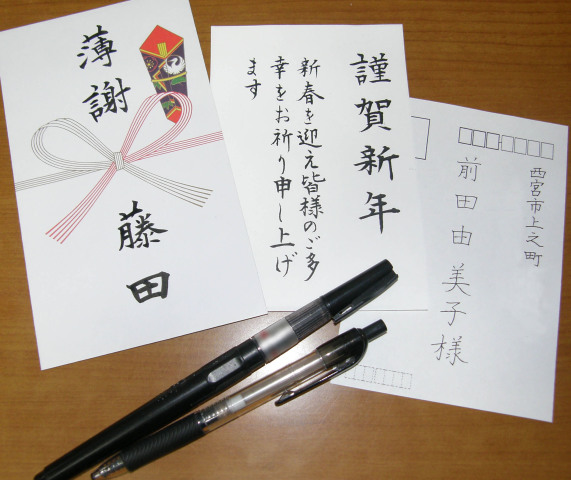 薄謝
藤田
謹賀新年
新春を迎え皆様のご多
幸をお祈り申し上げ
ます
西宮市上之町
前田由美子様